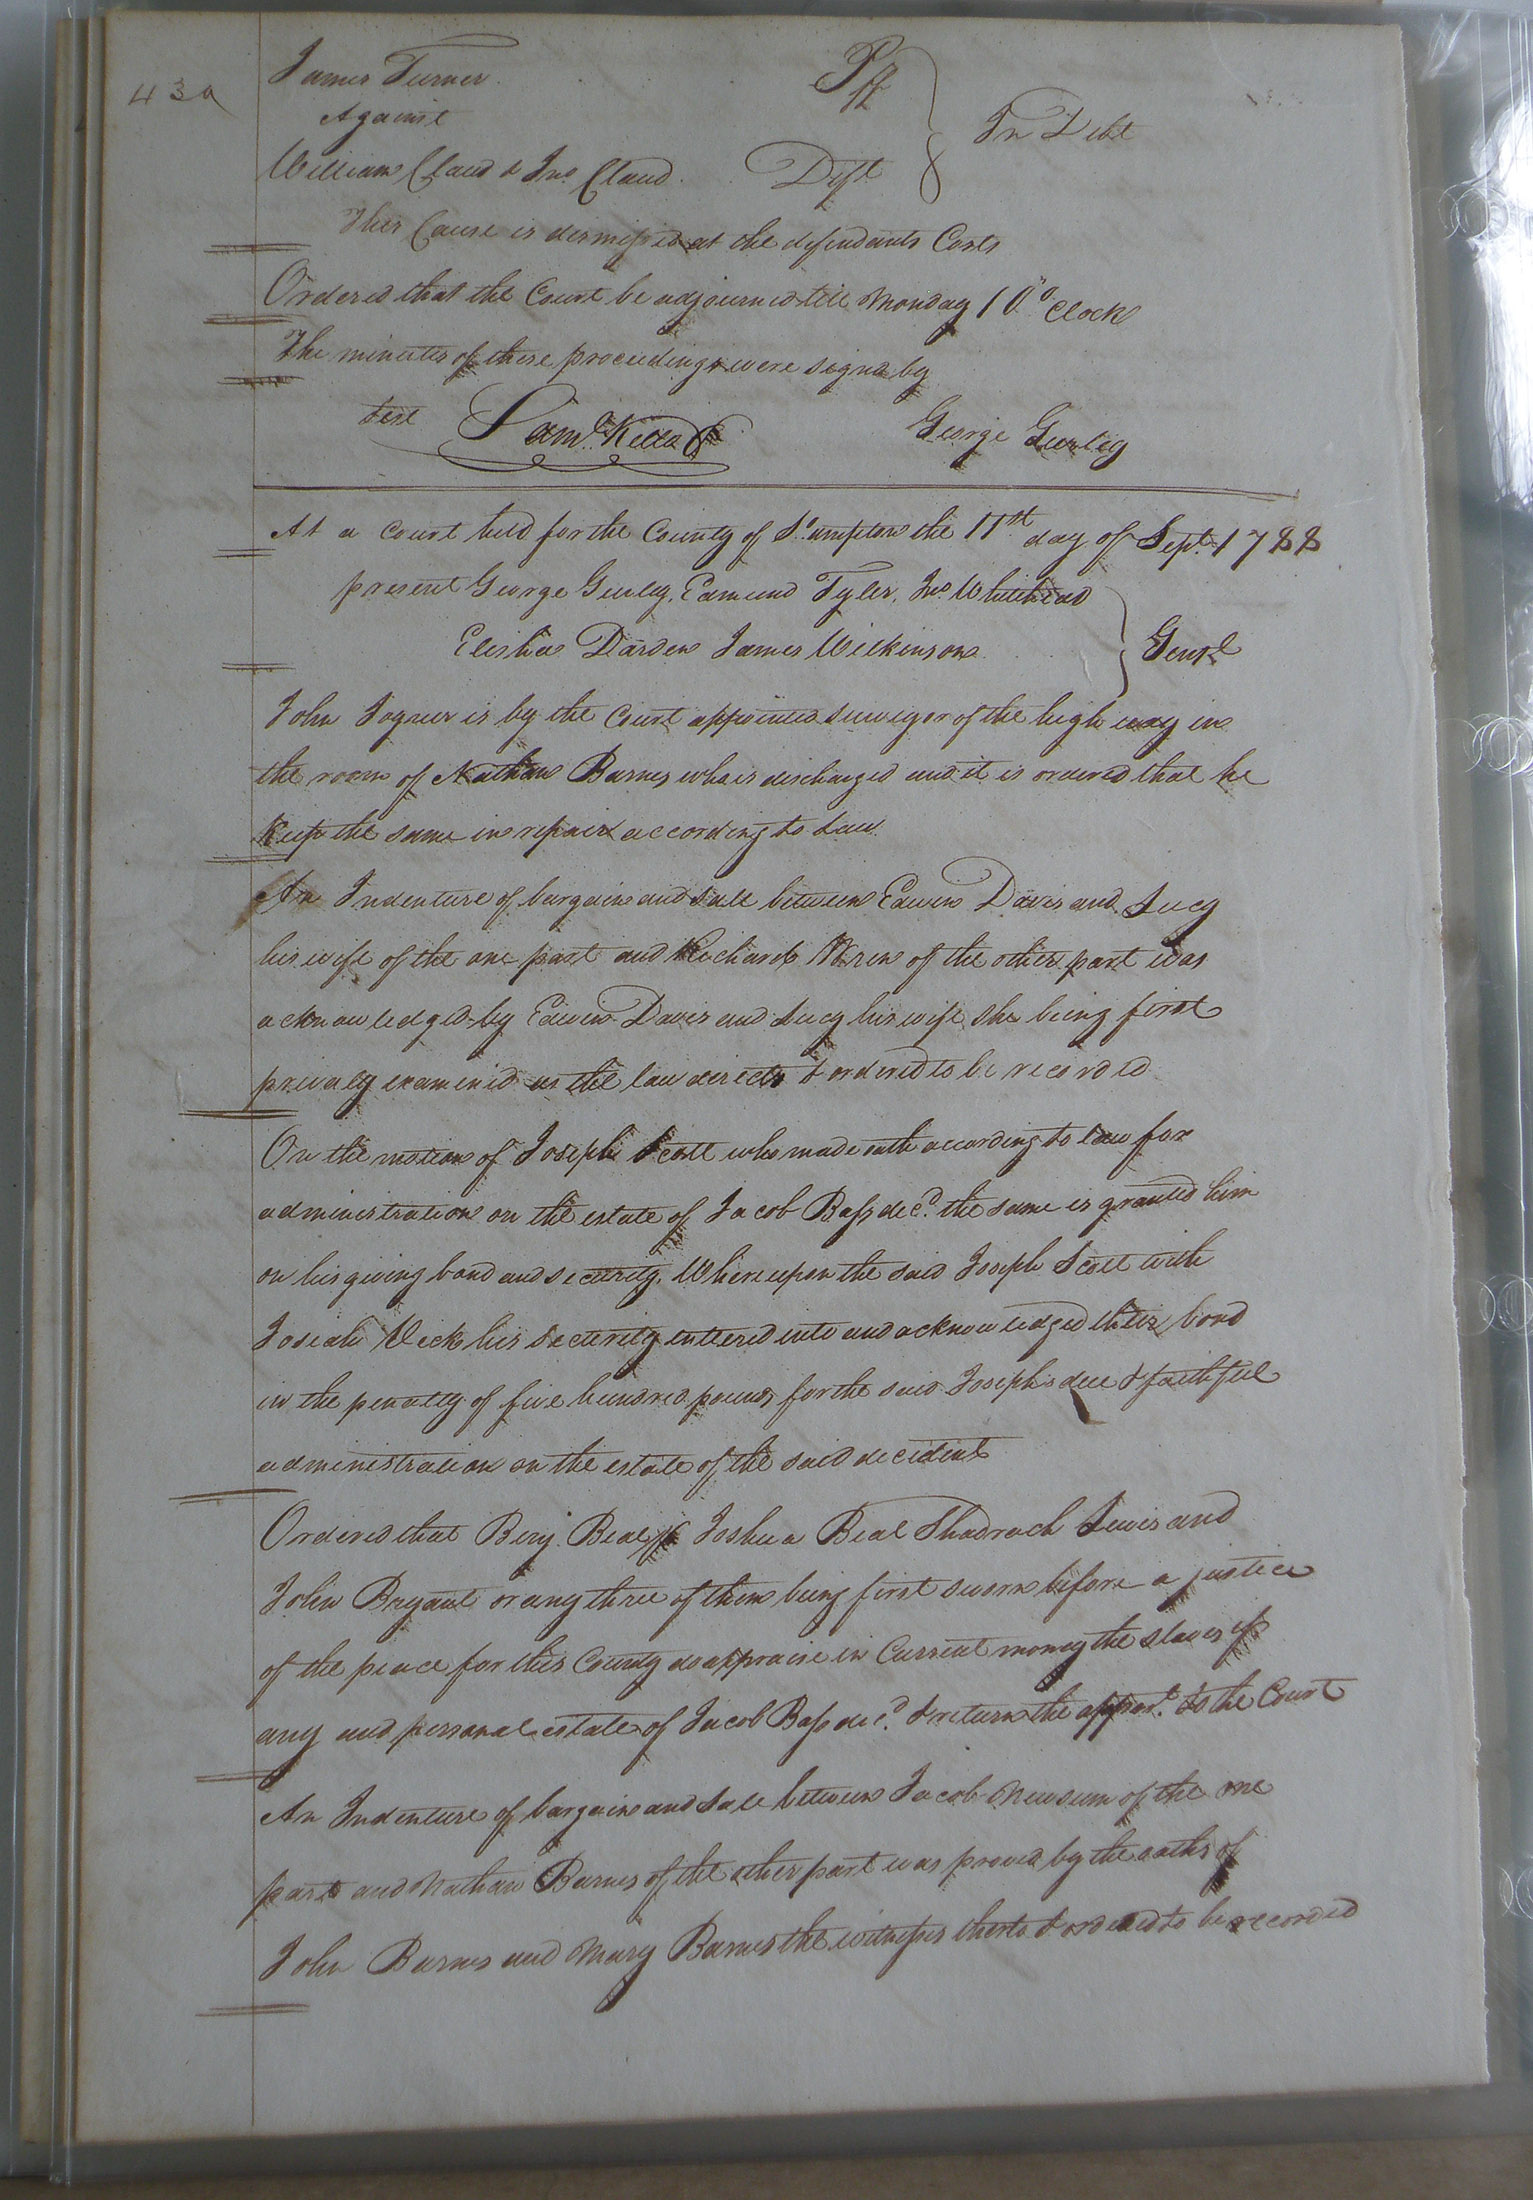 43a
James Turner Pff
Against In Debt
William Claud & Jno. Claud Dfts
This Cause is dismissed at the defendants Costs
Ordered that the Court be adjourned till Monday 10 o Clock
The minutes of these proceedings were signd by
test Saml. Kello George Gurley
At a Court held for the County of So.ampton the 11th day of Sept. 1788
present George Gurley, Edmund Tyler, Jno. Whitehead
Elisha Darden James Wilkinson Gentl
John Joyner is by the Court appointed surveyor of the high way in
the room of Nathan Barnes who is discharged and it is ordered that he
Keep the same in repair according to Law
An Indenture of bargain and Sale between Edwin Davis and Lucy
his wife of the one part and Richard Wren of the other part was
acknowledged by Edwin Davis and Lucy his wife she being first
privaly examined as the law directs & ordered to be recorded
On the motion of Joseph Scott who made oath according to law for
administration on the estate of Jacob Bass decd. the same is granted him
on his giving bond and security. Whereupon the said Joseph Scott with
Josiah Vick his Security entered into and acknowledged their bond
in the penalty of five hundred pounds for the said Joseph's due & faithful
administration on the estate of the said decident
Ordered that Benj. Beal Joshua Beal Shadrach Lewis and
John Bryant or any three of them being first sworn before a justice
of the peace for this County do appraise in Current money the slaves if
any and personal estate of Jacob Bass decd. & return the apprat. to the Court
An Indenture of bargain and Sale between Jacob Newsum of the one
part and Nathan Barnes of the other part was proved by the oaths of
John Barnes and Mary Barnes the witnesses thereto & ordered to be recorded